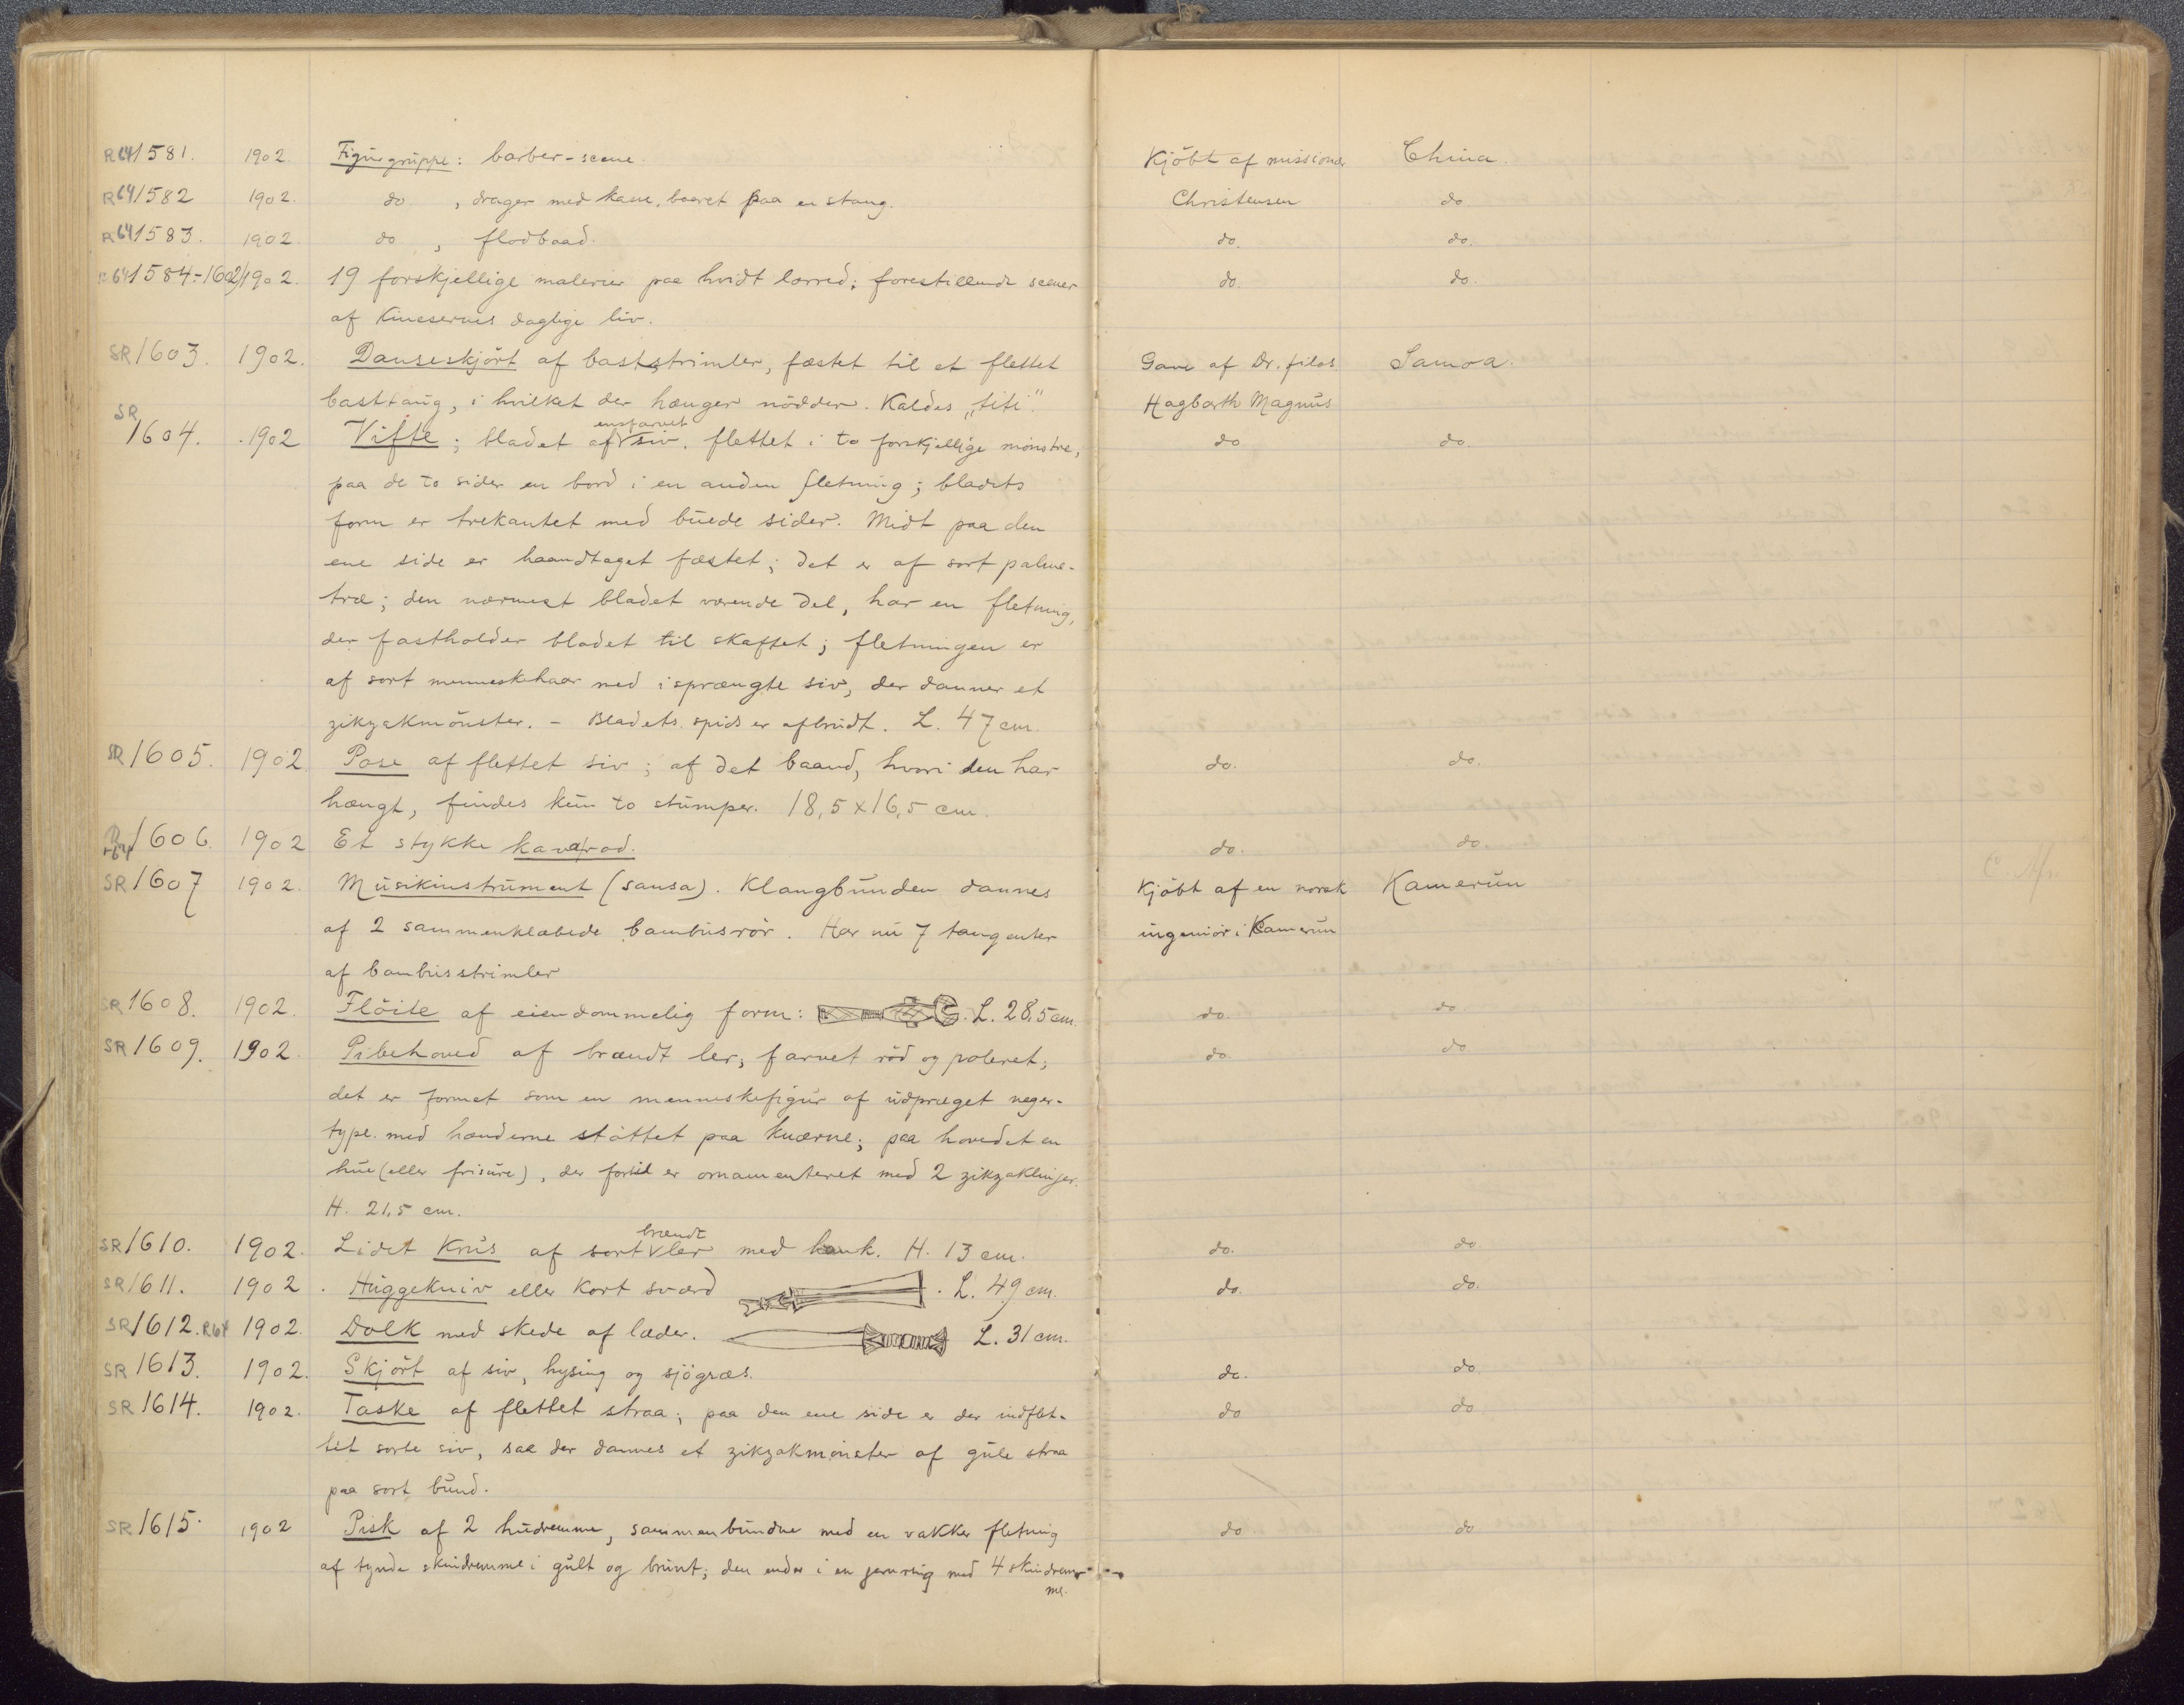 R64 1581. 1902. Figurgruppe: barber-scene. Kjöbt af missionær China.
R64 1582 1902. do , drager med kane, baaret paa en stang. Christensen do
R64 1583. 1902. do , flodbaad. do. do.
R64 1584.-1602 1902. 19 forskjellige malerier paa hvidt lærred; forestillende scener do. do.
af Kinesernes daglige liv.
SR 1603. 1902. Danseskjört af baststrimler, fæstet til et flettet Gave af Dr. filos Samoa.
basttaug, i hvilket der hænger nödder. Kaldes „titi". Hagbarth Magnus
SR 1604. 1902 Vifte; bladet af ensfarvet siv. flettet i to forskjellige mönstre, do do.
paa de to sider en bord i en anden fletning; bladets
form er trekantet med buede sider. Midt paa den
ene side er haandtaget fæstet; det er af sort palme-
træ; den nærmest bladet værende del, har en fletning,
der fastholder bladet til skaftet; fletningen er
af sort menneskehaar med isprængte siv, der danner et
zikzakmönster. - Bladets spids er afbrudt. L. 47 cm.
SR 1605. 1902 Pose af flettet siv; af det baand, hvori den har do. do.
hængt, findes kun to stumper. 18,5 x 16,5 cm.
R64 1606. 1902 Et stykke kavarod. do. do.
SR 1607 1902. Musikinstrument (sansa). Klangbunden dannes Kjöbt af en norsk Kamerun
af 2 sammenklæbede bambusrör. Har nu 7 tangenter ingeniör i Kamerun
af bambusstrimler
SR 1608. 1902. Flöite af eiendommelig form: L. 28,5 cm. do. do
SR 1609. 1902. Pibehoved af brændt ler, farvet röd og poleret; do. do
det er formet som en menneskefigur af udpræget neger-
type. med hænderne stöttet paa knærne; paa hovedet en
hue (eller frisure), der fortil er ornamenteret med 2 zikzaklinjer.
H. 21,5 cm.
SR 1610. 1902. Lidet Krus af sort brændt ler med hank. H. 13 cm. do. do.
SR 1611. 1902. Huggekniv eller kort sværd . L. 49 cm. do. do.
SR 1612. R64 1902. Dolk med skede af læder. L. 31 cm.
SR 1613. 1902. Skjört af siv, hysing og sjögræs. do. do
SR 1614. 1902. Taske af flettet straa; paa den ene side er der indflet- do do
tet sorte siv, saa der dannes et zikzakmönster af gule straa
paa sort bund.
SR 1615. 1902 Pisk af 2 hudremme, sammenbundne med en vakker fletning do do
af tynde skindremme i gult og brunt; den ender i en jernring med 4 skindrem-
me.